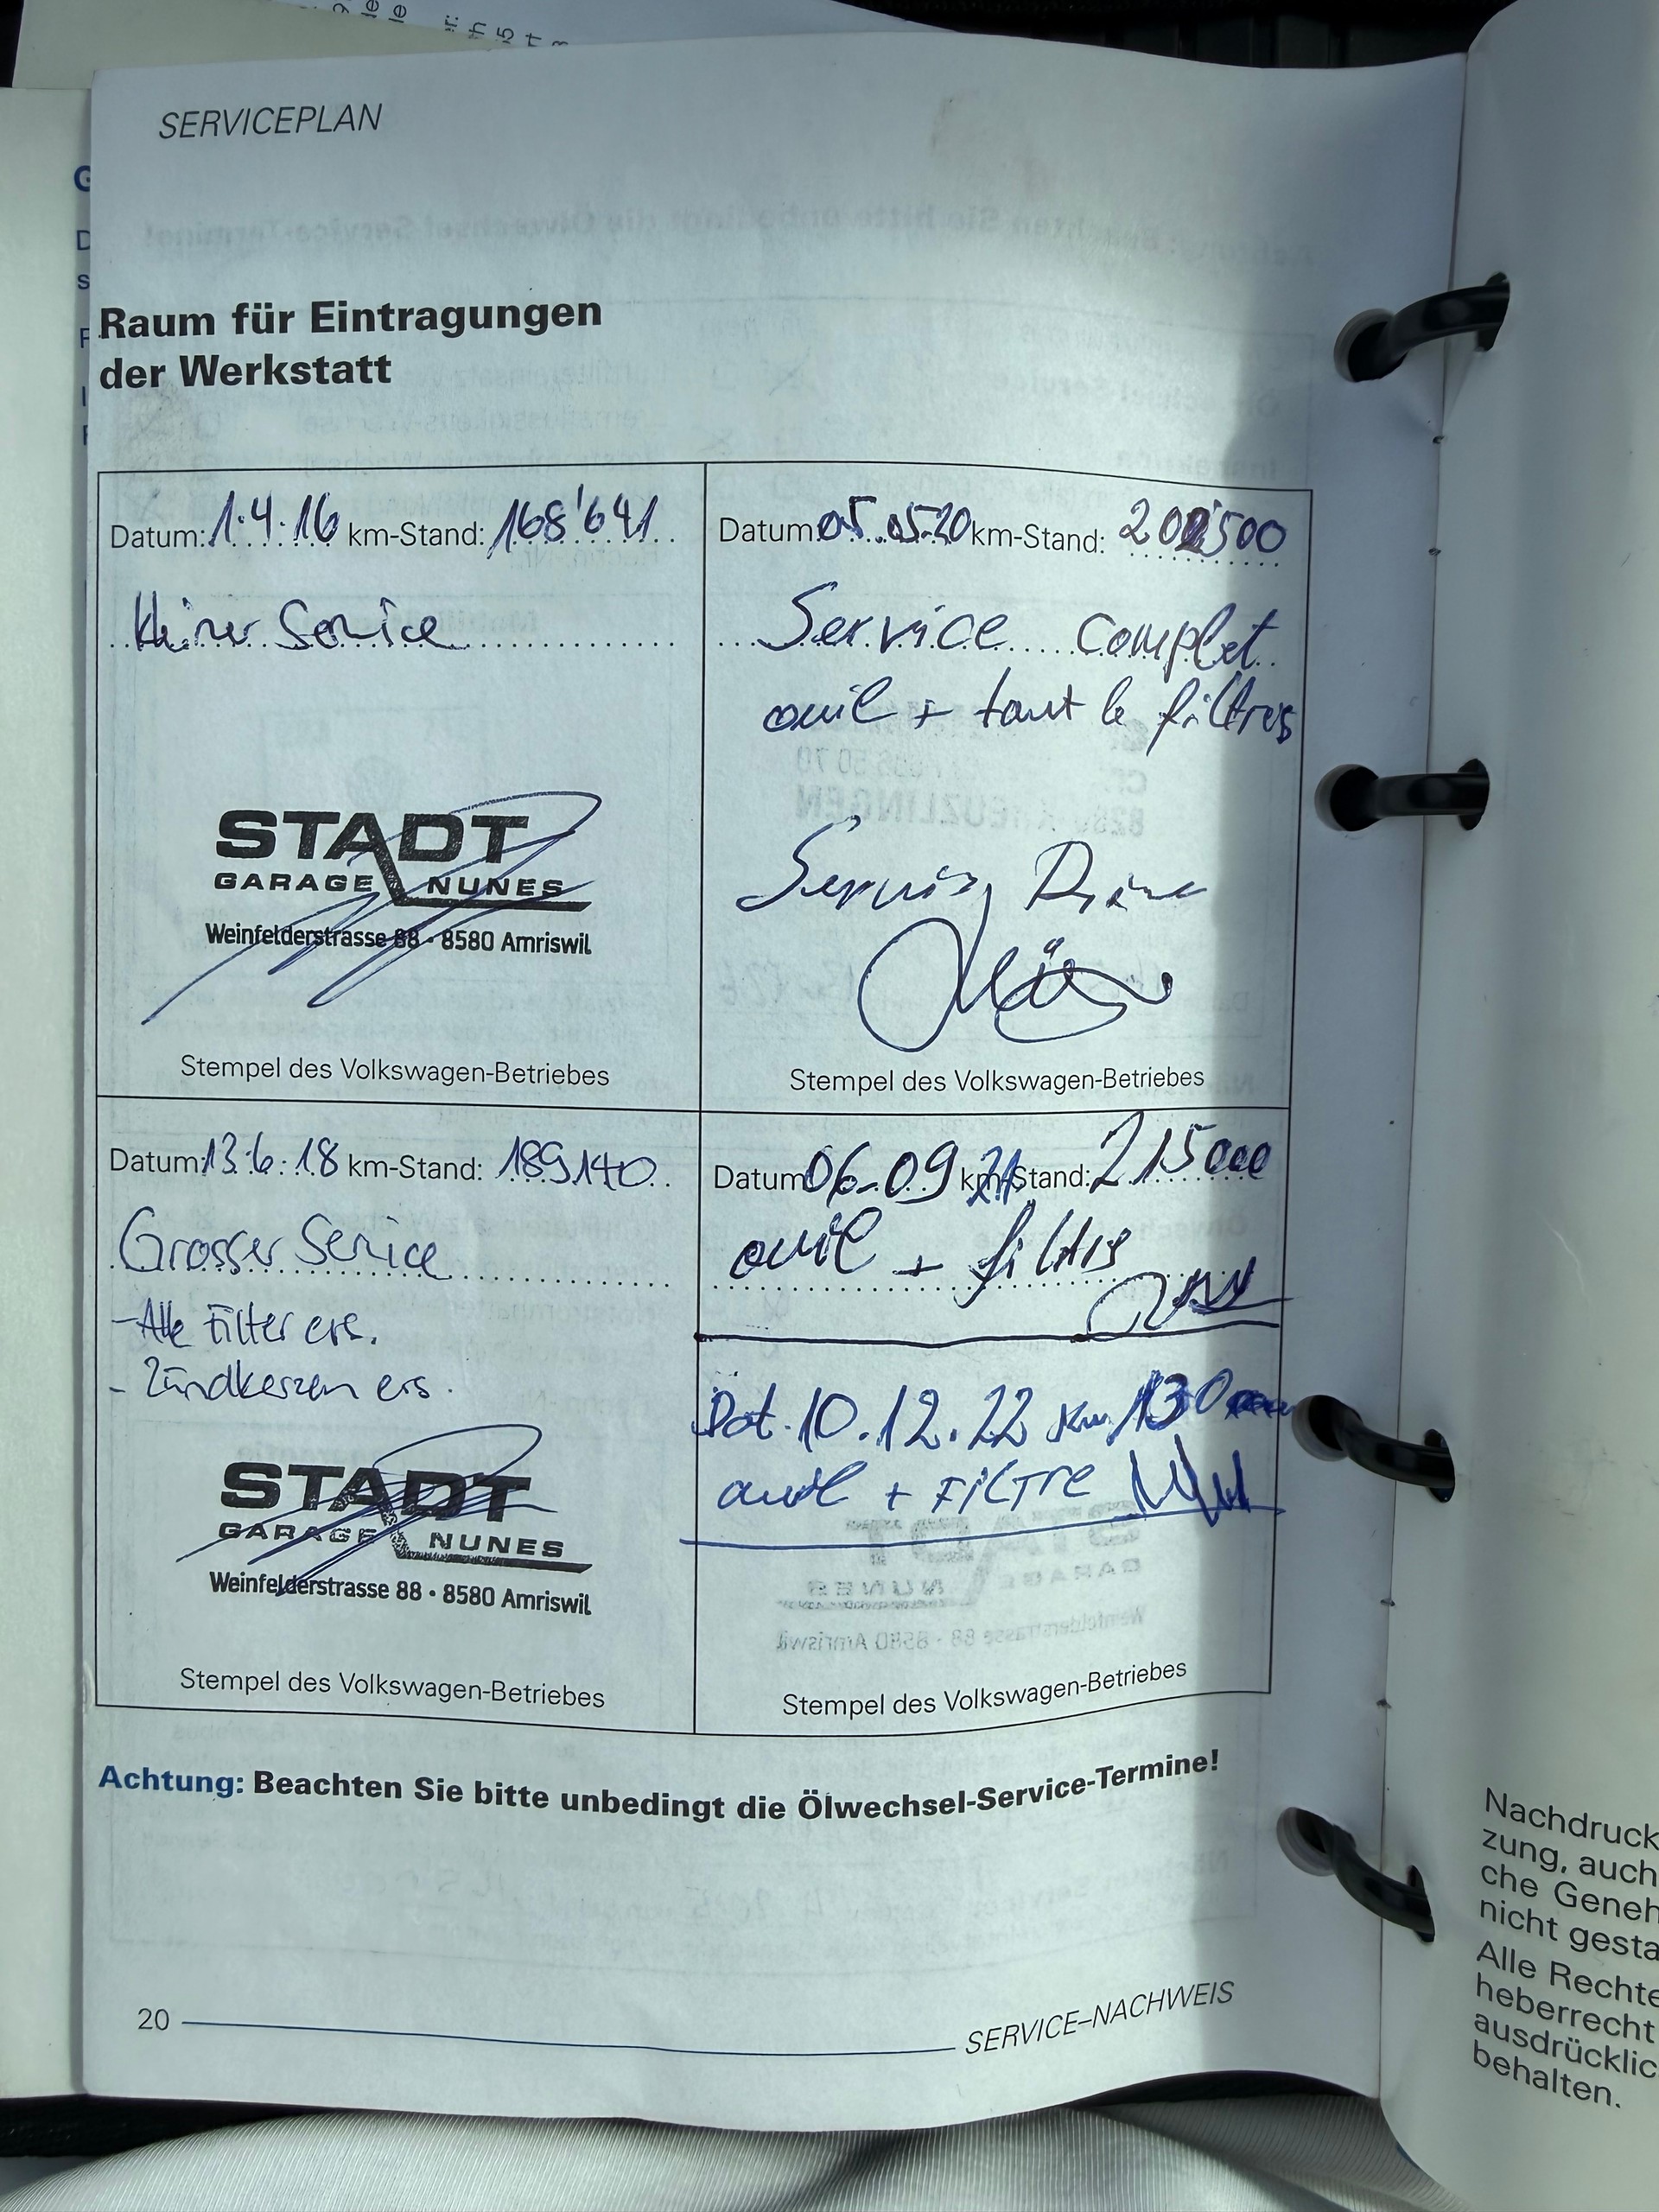 SERVICEPLAN
Raum für Eintragungen
der Werkstatt
Datum: 1.4.16 km-Stand: 168'641
Kleiner Service
STADT
GARAGE NUNES
Weinfelderstrasse 88 · 8580 Amriswil
Stempel des Volkswagen-Betriebes
Datum 05.05.20 km-Stand: 202'500
Service Complet
ouil + tout le filtres
Stempel des Volkswagen-Betriebes
Datum: 13.6.18 km-Stand: 189140
Grosser Service
- Alle Filter ers.
- Zündkerzen ers.
STADT
GARAGE NUNES
Weinfelderstrasse 88 · 8580 Amriswil
Stempel des Volkswagen-Betriebes
Datum 06-09 21 km-Stand: 215000
ouil + filtre
Dat. 10.12.22 Km
ouil + FILTRE
Stempel des Volkswagen-Betriebes
Achtung: Beachten Sie bitte unbedingt die Ölwechsel-Service-Termine!
20
SERVICE–NACHWEIS
Nachdruck
zung, auch
che Geneh
nicht gesta
Alle Rechte
heberrecht
ausdrücklic
behalten.